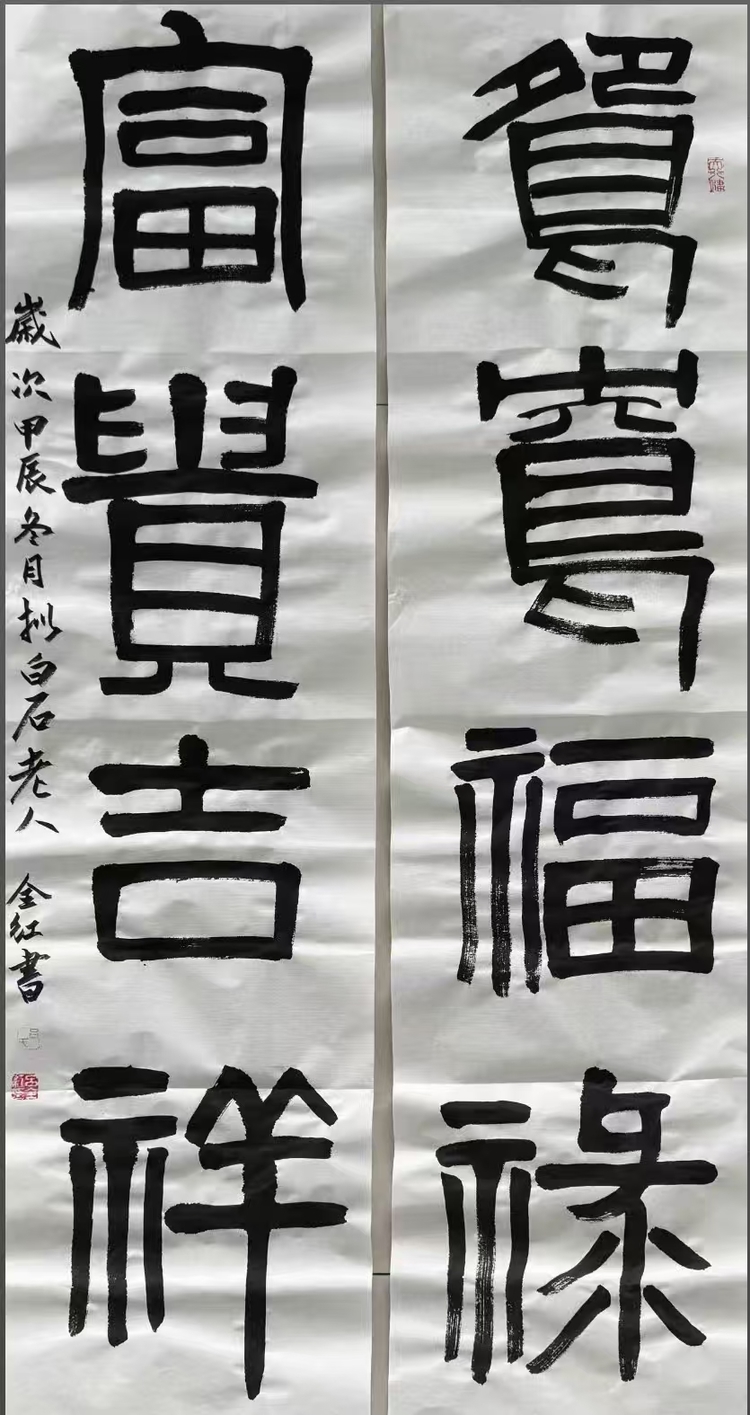 鴛鴦福祿
富貴吉祥
歲次甲辰冬月拟白石老人 金红書